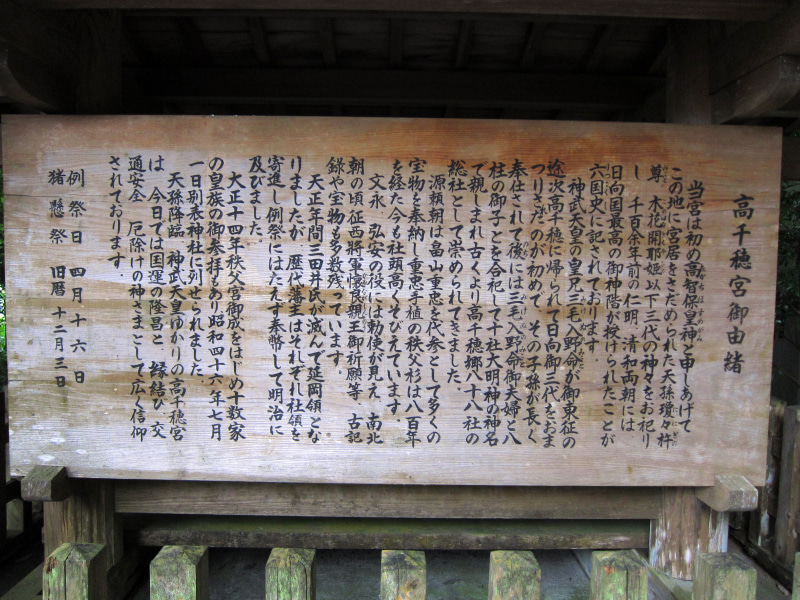 高千穂宮御由緒
当宮は初め高智保皇神と申しあげて
この地に宮居をさだめられた天孫瓊々杵
尊、木花開耶姫以下三代の神々をお祀り
し、千百余年前の仁明、清和両朝には
日向国最高の御神階が授けられたことが
六国史に記されております。
神武天皇の皇兄三毛入野命が御東征の
途次高千穂に帰られて日向御三代をおま
つりされたのが初めで、その子孫が長く
奉仕されて後には三毛入野命御夫婦と八
柱の御子とを合祀して十社大明神の神名
で親しまれ古くより高千穂郷八十八社の
総社として崇められてきました。
源頼朝は畠山重忠を代参として多くの
宝物を奉納し重忠手植の秩父杉は八百年
を経た今も社頭高くそびえています。
文永、弘安の役には勅使が見え、南北
朝の頃征西将軍懐良親王御祈願等、古記
録や宝物も多数残っています。
天正年間三田井氏が滅んで延岡領とな
りましたが、歴代藩主はそれぞれ社領を
寄進し例祭にはたえず奉幣して明治に
及びました。
大正十四年秩父宮御成をはじめ十数家
の皇族の御参拝もあり昭和四十六年七月
一日別表神社に列せられました。
天孫降臨、神武天皇ゆかりの高千穂宮
は、今日では国運の隆昌と、縁結び、交
通安全、厄除けの神さまとして広く信仰
されております。
例祭日 四月十六日
猪懸祭 旧暦 十二月三日